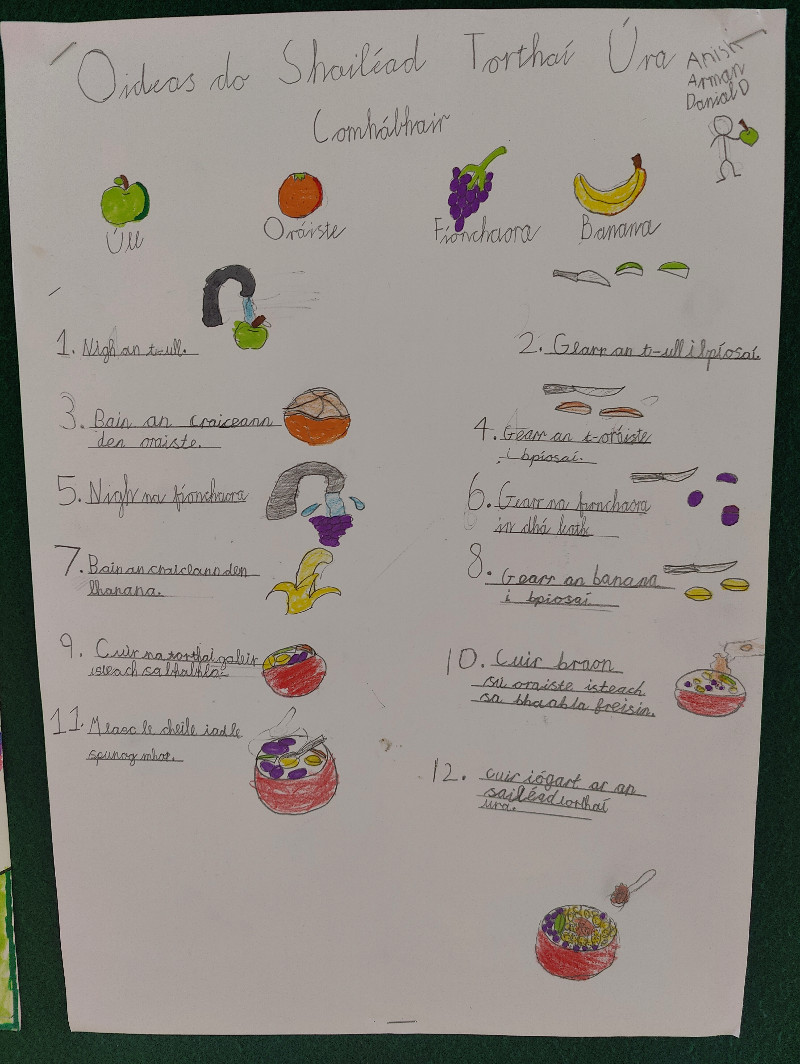 Oideas do Shailéad Torthaí Úra
Anish
Arman
Danial D
Comhábhair
Úll
Oráiste
Fíonchaora
Banana
1. Nigh an t-ull.
2. Gearr an t-ull i bpíosaí.
3. Bain an craiceann
den oraiste.
4. Gearr an t-oráiste
i bpíosaí.
5. Nigh na fíonchaora
6. Gearr na fionchaora
in dhá leath
7. Bain an craiceann den
bhanana.
8. Gearr an banana
i bpiosaí.
9. Cuir na torthaí go léir
isteach sa bhabhla.
10. Cuir braon
sú oraiste isteach
sa bhabhla freisin.
11. Measc le cheile iad le
spunog mhor.
12. cuir iógart ar an
sailéad torthaí
ura.